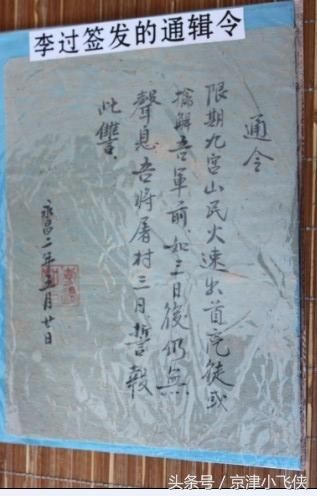 李过签发的通辑令
通令
限期九宫山民火速出首兇徒或
擒解吾軍前如三日後仍無
聲息吾将屠村三月誓報
此讐
永昌二年五月廿日
头条号／京津小飞侠